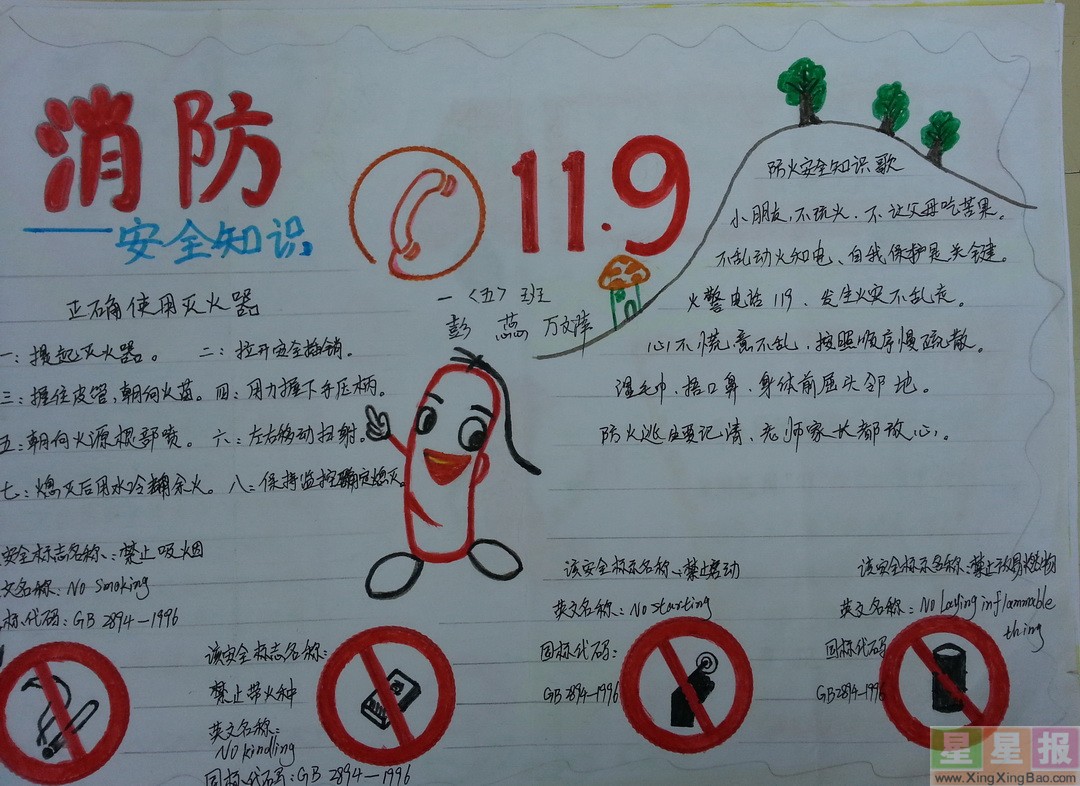 消防
——安全知识
11.9
一〈五〉班
彭 蕊 万文萍
正确使用灭火器
一:提起灭火器。 二:拉开安全插销。
三:握住皮管,朝向火苗。四:用力握下手压柄。
五:朝向火源根部喷。 六:左右移动扫射。
七:熄灭后用水冷却余火。八:保持监控确定熄灭
防火安全知识歌
小朋友,不玩火、不让父母吃苦果。
不乱动火和电、自我保护是关键。
火警电话119、发生火灾不乱走。
心不慌意不乱,按照顺序慢疏散。
湿毛巾、捂口鼻、身体前屈头邻地。
防火逃生要记清、老师家长都放心。
安全标志名称:禁止吸烟
文名称:No smoking
标代码:GB 2894—1996
该安全标志名称:
禁止带火种
英文名称:
No kindling
国标代码:GB 2894—1996
该安全标示名称:禁止启动
英文名称:No starting
国标代码:
GB 2894—1996
该安全标示名称:禁止放易燃物
英文名称:No Laying inflammable
thing
国标代码
GB2894—1996
星星报
www.XingXingBao.com